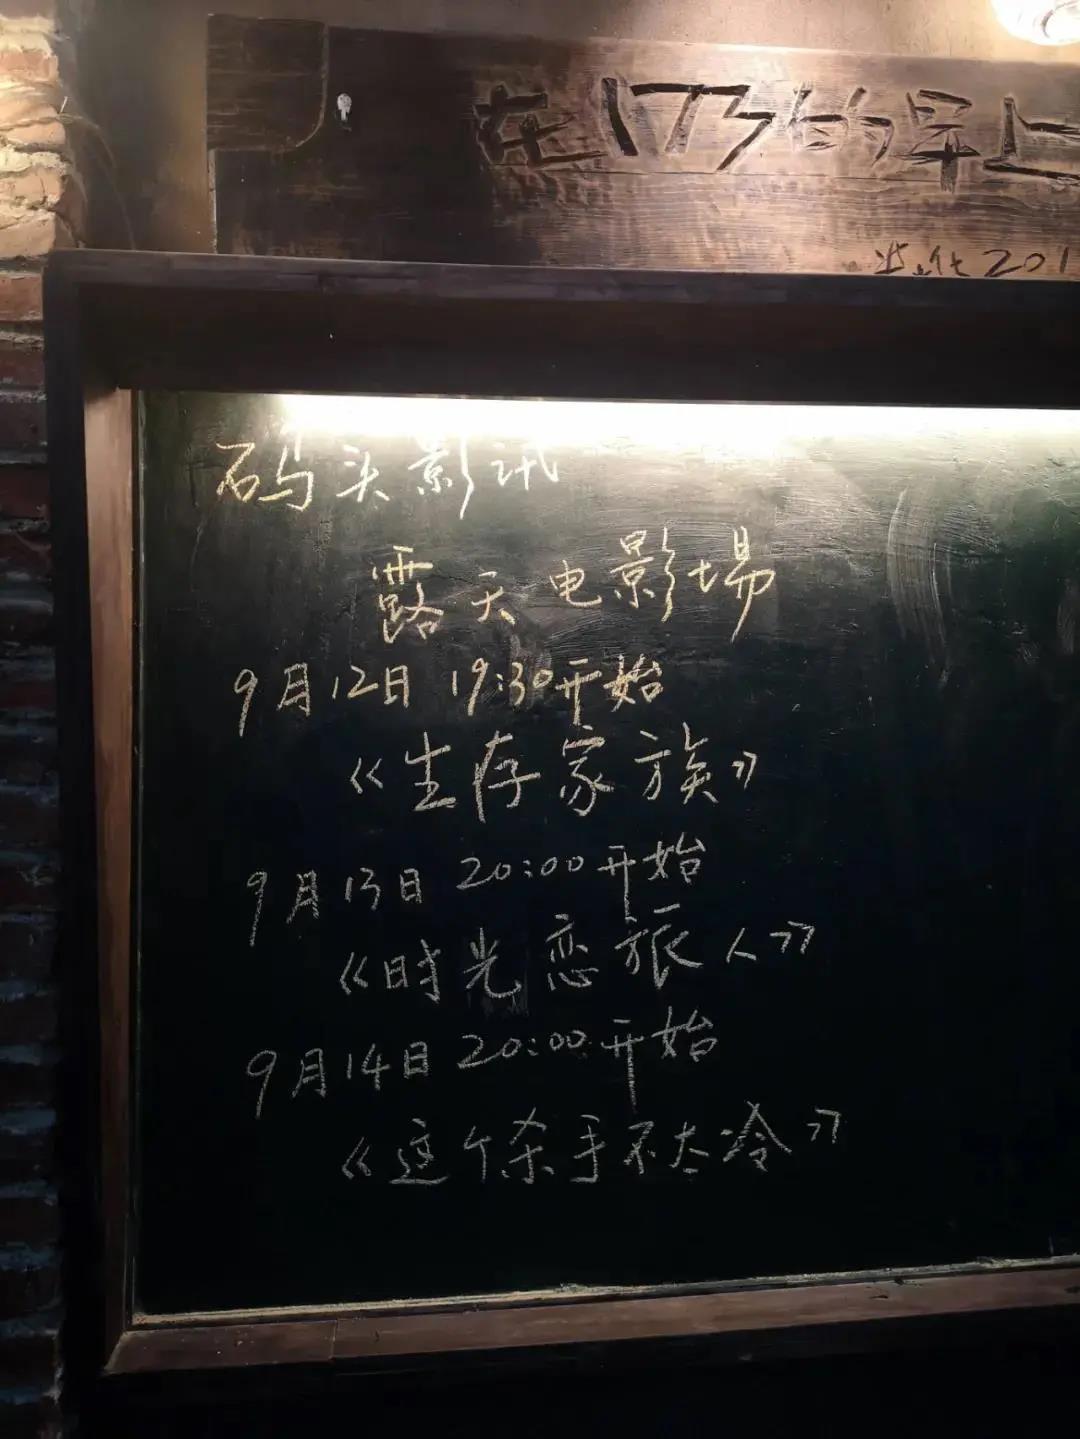 在1736的早上
201
码头影讯
露天电影場
9月12日 19:30开始
《生存家族》
9月13日 20:00开始
《时光恋旅人》
9月14日 20:00开始
《这个杀手不太冷》